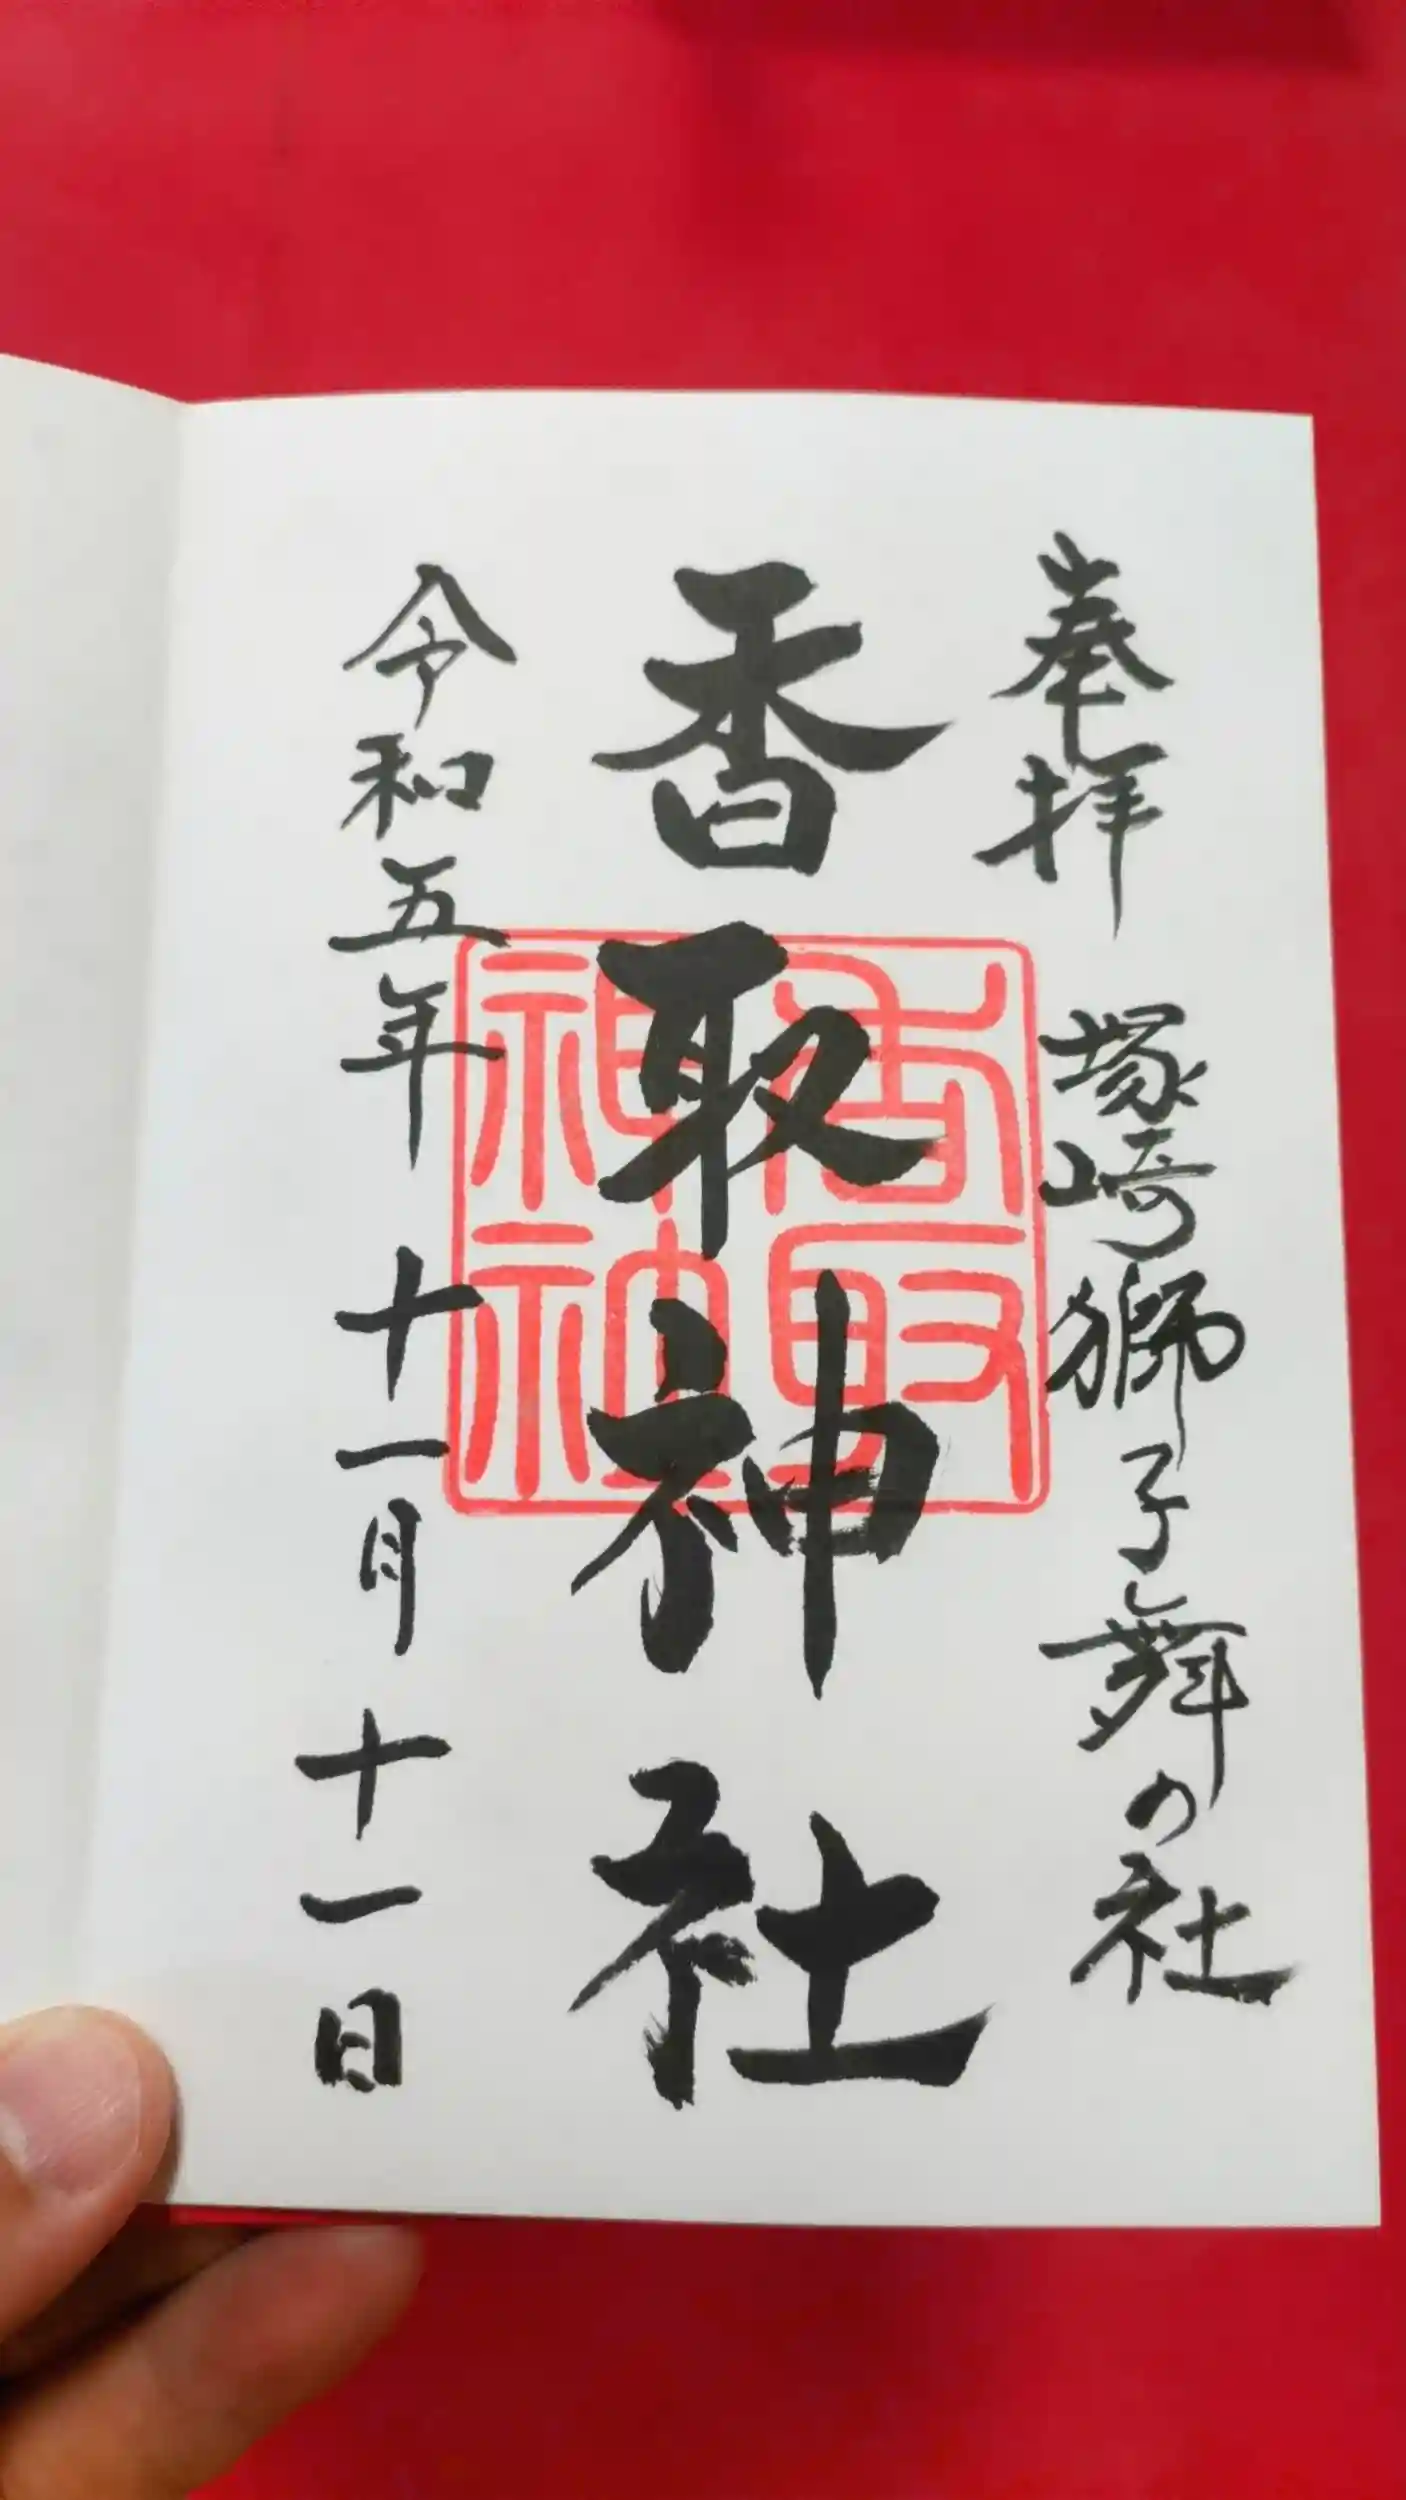 奉拝 塚崎獅子舞の社
香取神社
令和五年 十一月 十一日
香取
神社